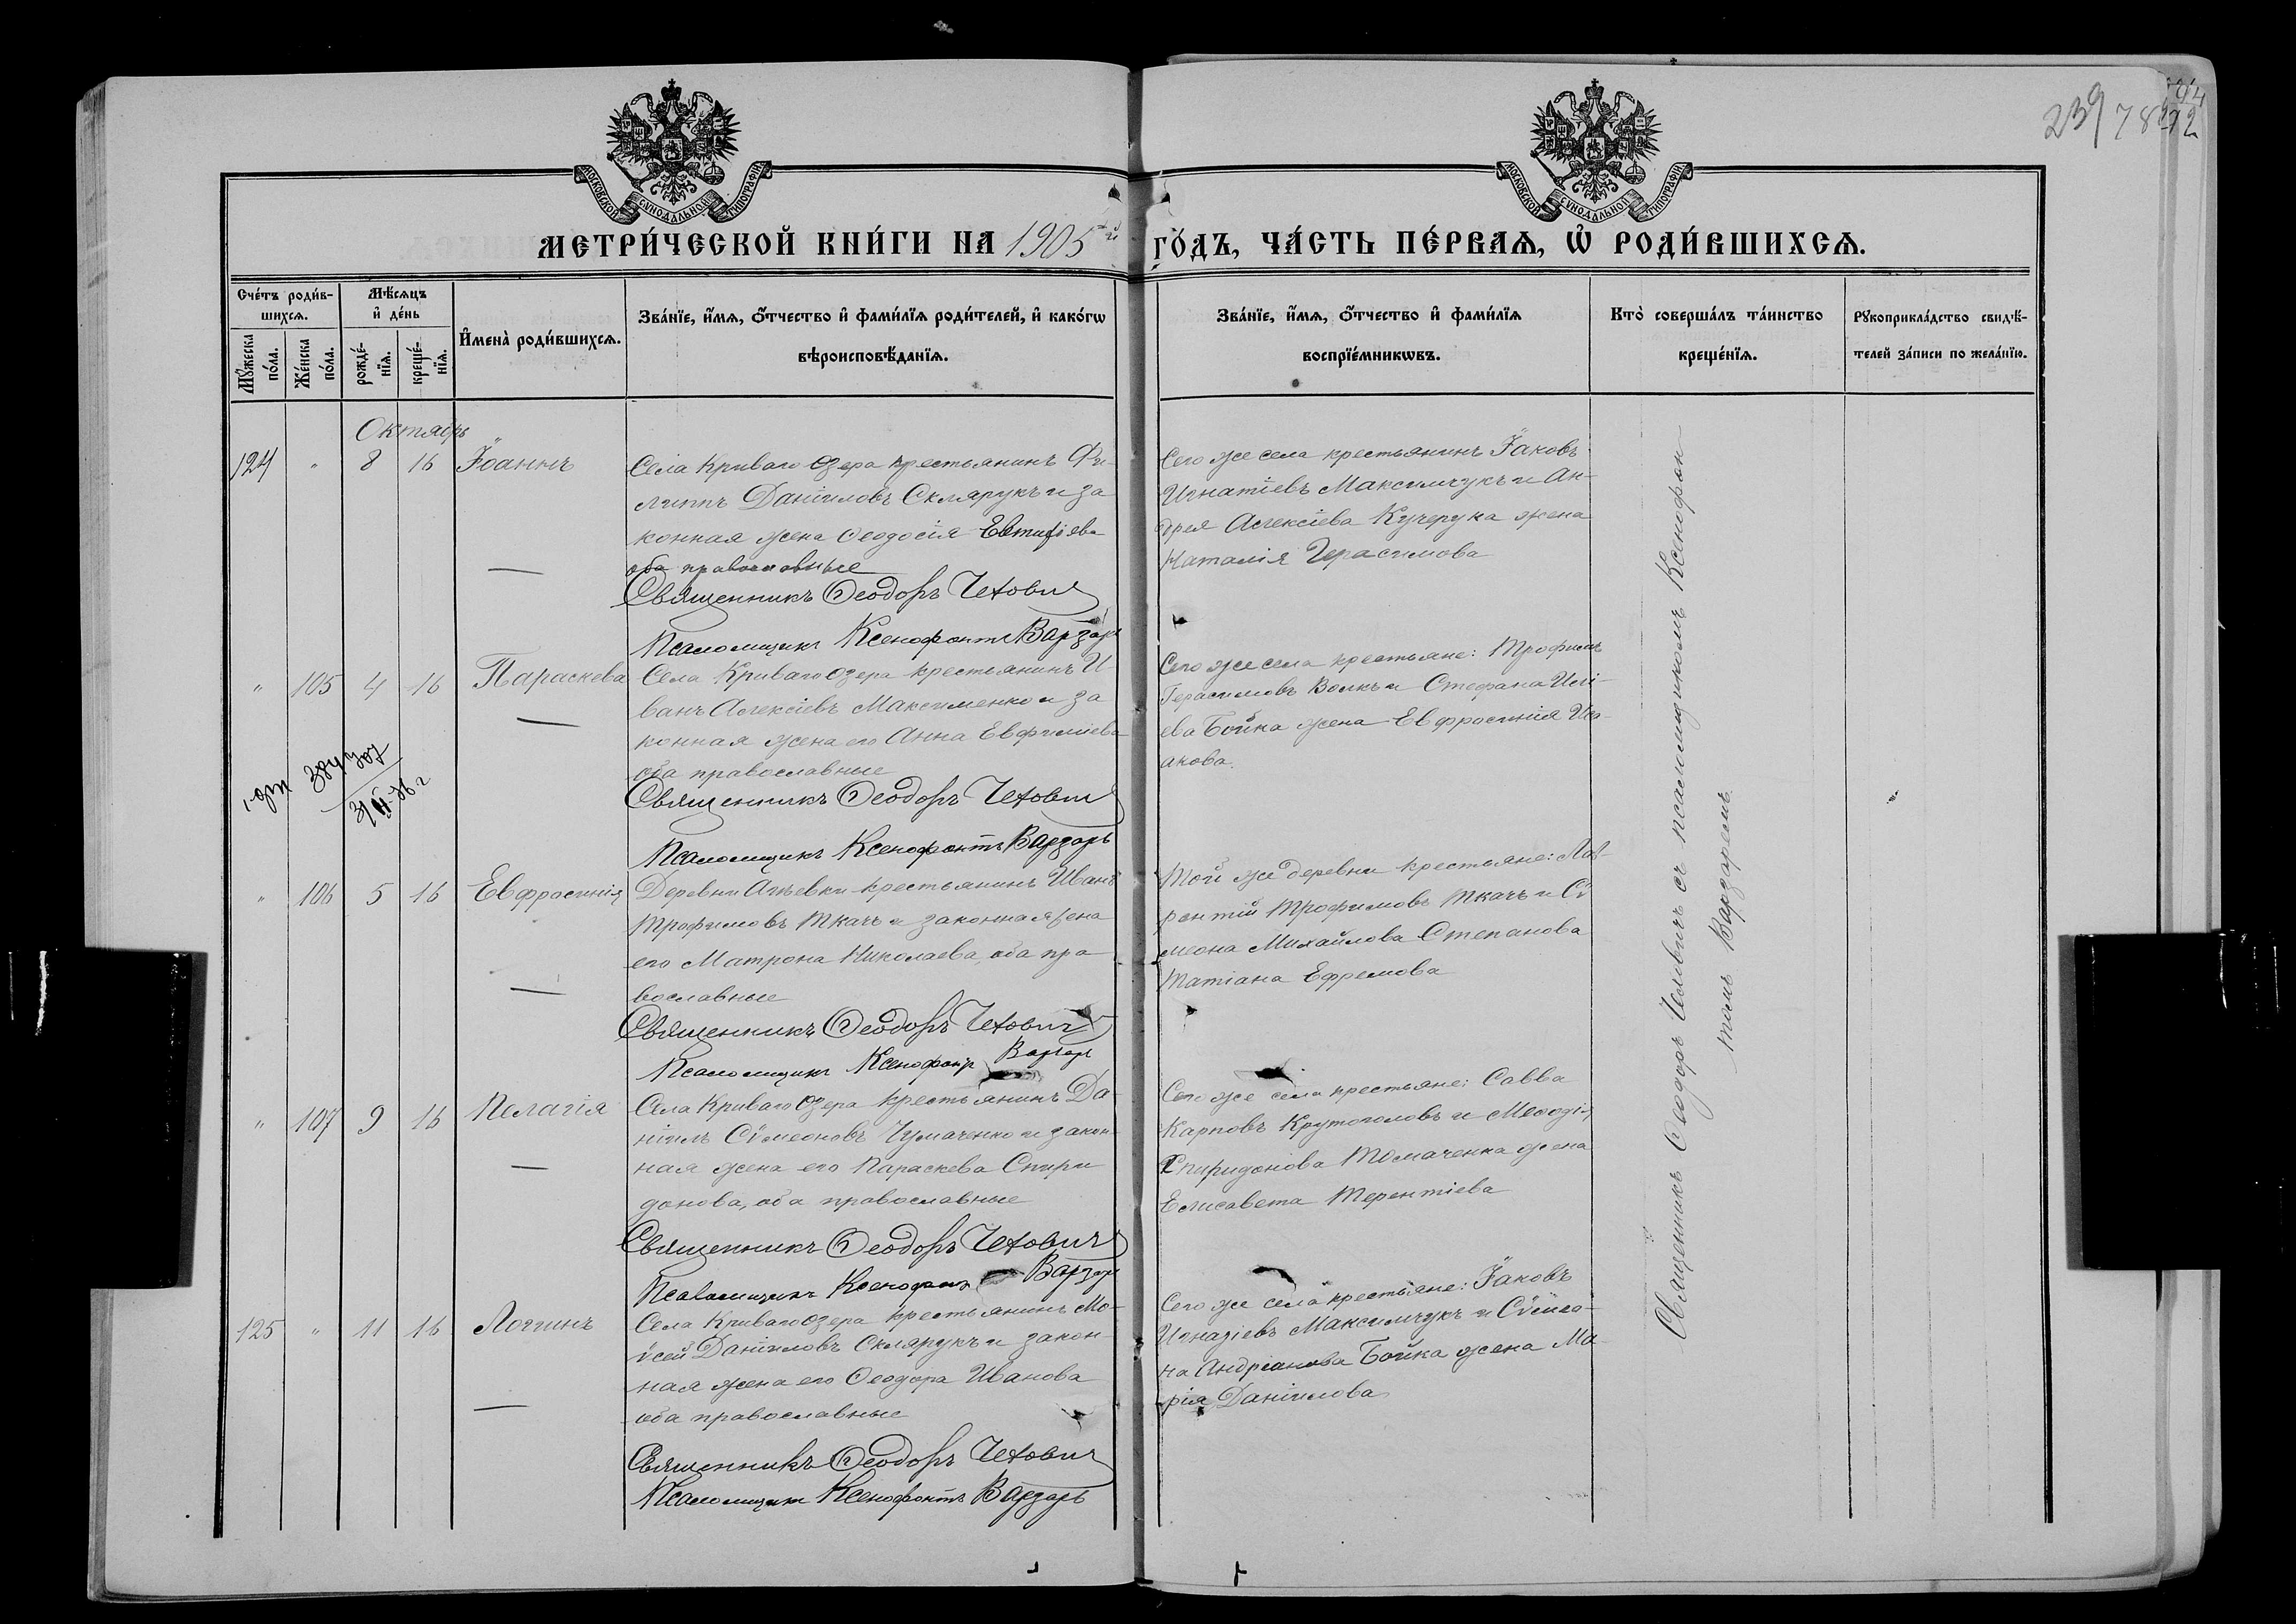 239 78
МОСКОВСКОЙ СѴНОДАЛЬНОЙ ТИПОГРАФІИ.
МОСКОВСКОЙ СѴНОДАЛЬНОЙ ТИПОГРАФІИ.
МЕТРИ́ЧЕСКОЙ КНИ́ГИ НА 1905й ГО́ДЪ, ЧА́СТЬ ПЕ́РВАѦ, Ѽ РОДИ́ВШИХСѦ.
Сче́тъ роди́в-
шихсѧ.
Мꙋ́жеска по́ла.
Же́нска по́ла.
Мѣ́сѧцъ
и҆ де́нь
рожде́-
нїѧ.
креще́-
нїѧ.
И҆мена̀ роди́вшихсѧ.
Зва́нїе, и҆́мѧ, ѻ҆́тчество и҆ фами́лїѧ роди́телей, и҆ како́гѡ
вѣроисповѣ́данїѧ.
Зва́нїе, и҆́мѧ, ѻ҆́тчество и҆ фами́лїѧ
воспрїе́мникѡвъ.
Кто̀ соверша́лъ та́инство
креще́нїѧ.
Рꙋкоприкла́дство свидѣ́-
телей за́писи по жела́нїю.
Октябрь
124 " 8 16 Іоаннъ
Села Криваго Озера крестьянинъ Фи-
липпъ Даніиловъ Склярукъ и за
конная жена Ѳеодосія Евтиѳіева
оба православные
Священникъ Ѳеодоръ
Псаломщикъ Ксенофонтъ Варзарь
Сего же села крестьянинъ Іаковъ
Игнатіевъ Максимчукъ и Ан-
дрея Алексіева Кучерука жена
Наталія Герасимова
" 105 4 16 Параскева
Села Криваго Озера крестьянинъ И-
ванъ Алексіевъ Максименко и за
конная жена его Анна Евфиміева
оба православные
Священникъ Ѳеодоръ
Псаломщикъ Ксенофонтъ Варзарь
Сего же села крестьяне: Трофимъ
Герасимовъ Волкъ и Стефана Илі-
ева Бойка жена Евфросинія Иса-
акова.
" 106 5 16 Евфросинія
Деревни крестьянинъ Иванъ
Трофимовъ Ткачъ и законная жена
его Матрона Николаева, оба пра
вославные
Священникъ Ѳеодоръ
Псаломщикъ Ксенофонтъ Варзарь
Той же деревни крестьяне: Лав-
рентій Трофимовъ Ткачъ и Сѵ
меона Михайлова Степанова
Татіана Ефремова
" 107 9 16 Пелагія
Села Криваго Озера крестьянинъ Да-
ніилъ Сѵмеоновъ Чумаченко и закон-
ная жена его Параскева Спири
донова, оба православные
Священникъ Ѳеодоръ
Псаломщикъ Ксенофонтъ Варзарь
Сего же села крестьяне: Савва
Карповъ Крутоголовъ и Меѳодія
Спиридонова Томаченка жена
Елисавета Терентіева
125 " 11 16 Логгинъ
Села Криваго Озера крестьянинъ Мо-
ѵсей Даніиловъ Склярукъ и закон-
ная жена его Ѳеодора Иванова
оба православные
Священникъ Ѳеодоръ
Псаломщикъ Ксенофонтъ Варзарь
Сего же села крестьяне: Іаковъ
Игнатіевъ Максимчукъ и Сѵмео-
на Андріанова Бойка жена Ма-
рія Даніилова
Священникъ Ѳеодоръ съ псаломщикомъ Ксенофон-
томъ Варзаремъ